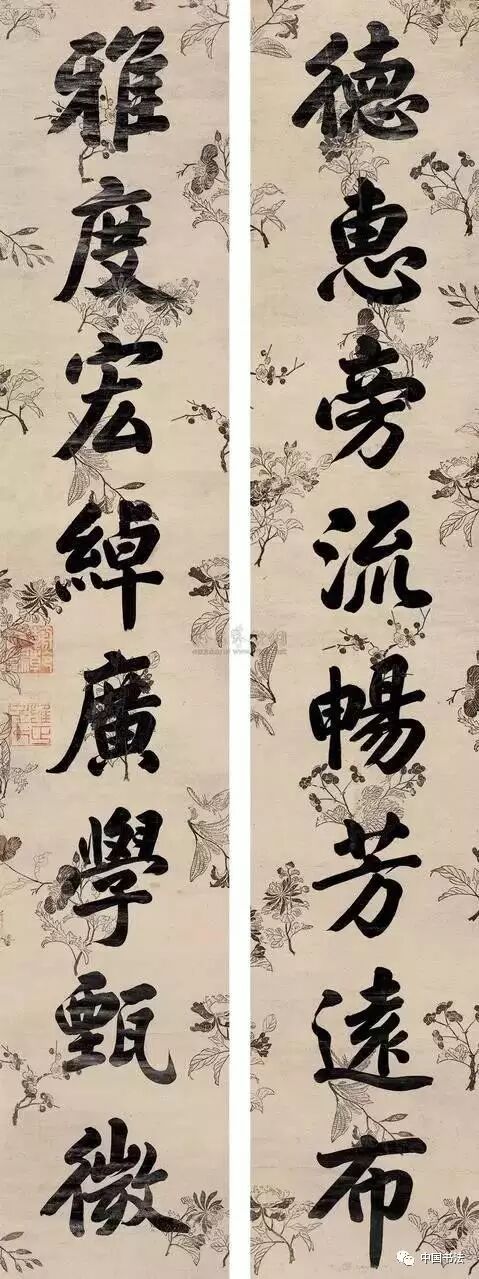 德惠旁流暢芳遠布
雅度宏綽廣學甄微
中国书法